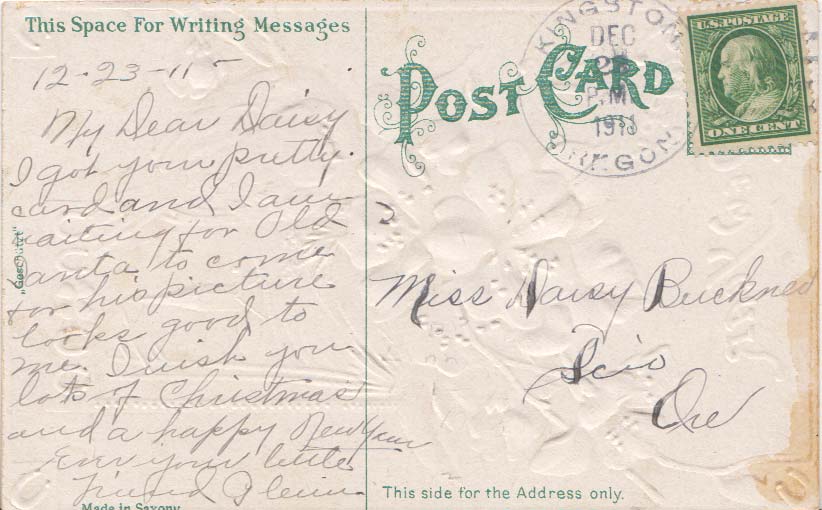 This Space For Writing Messages
12-23-11
My Dear Daisy
I got your pretty
card and I am
waiting for Old
Santa to come
for his picture
looks good to
me. I wish you
lots of Christmas
and a happy New Year
Ever your little
friend Glenn
Made in Saxony
„Geschützt"
POST CARD
KINGSTON
DEC
P.M.
1911
OREGON
U.S. POSTAGE
ONE CENT
Miss Daisy Buckner
Scio
Ore
This side for the Address only.